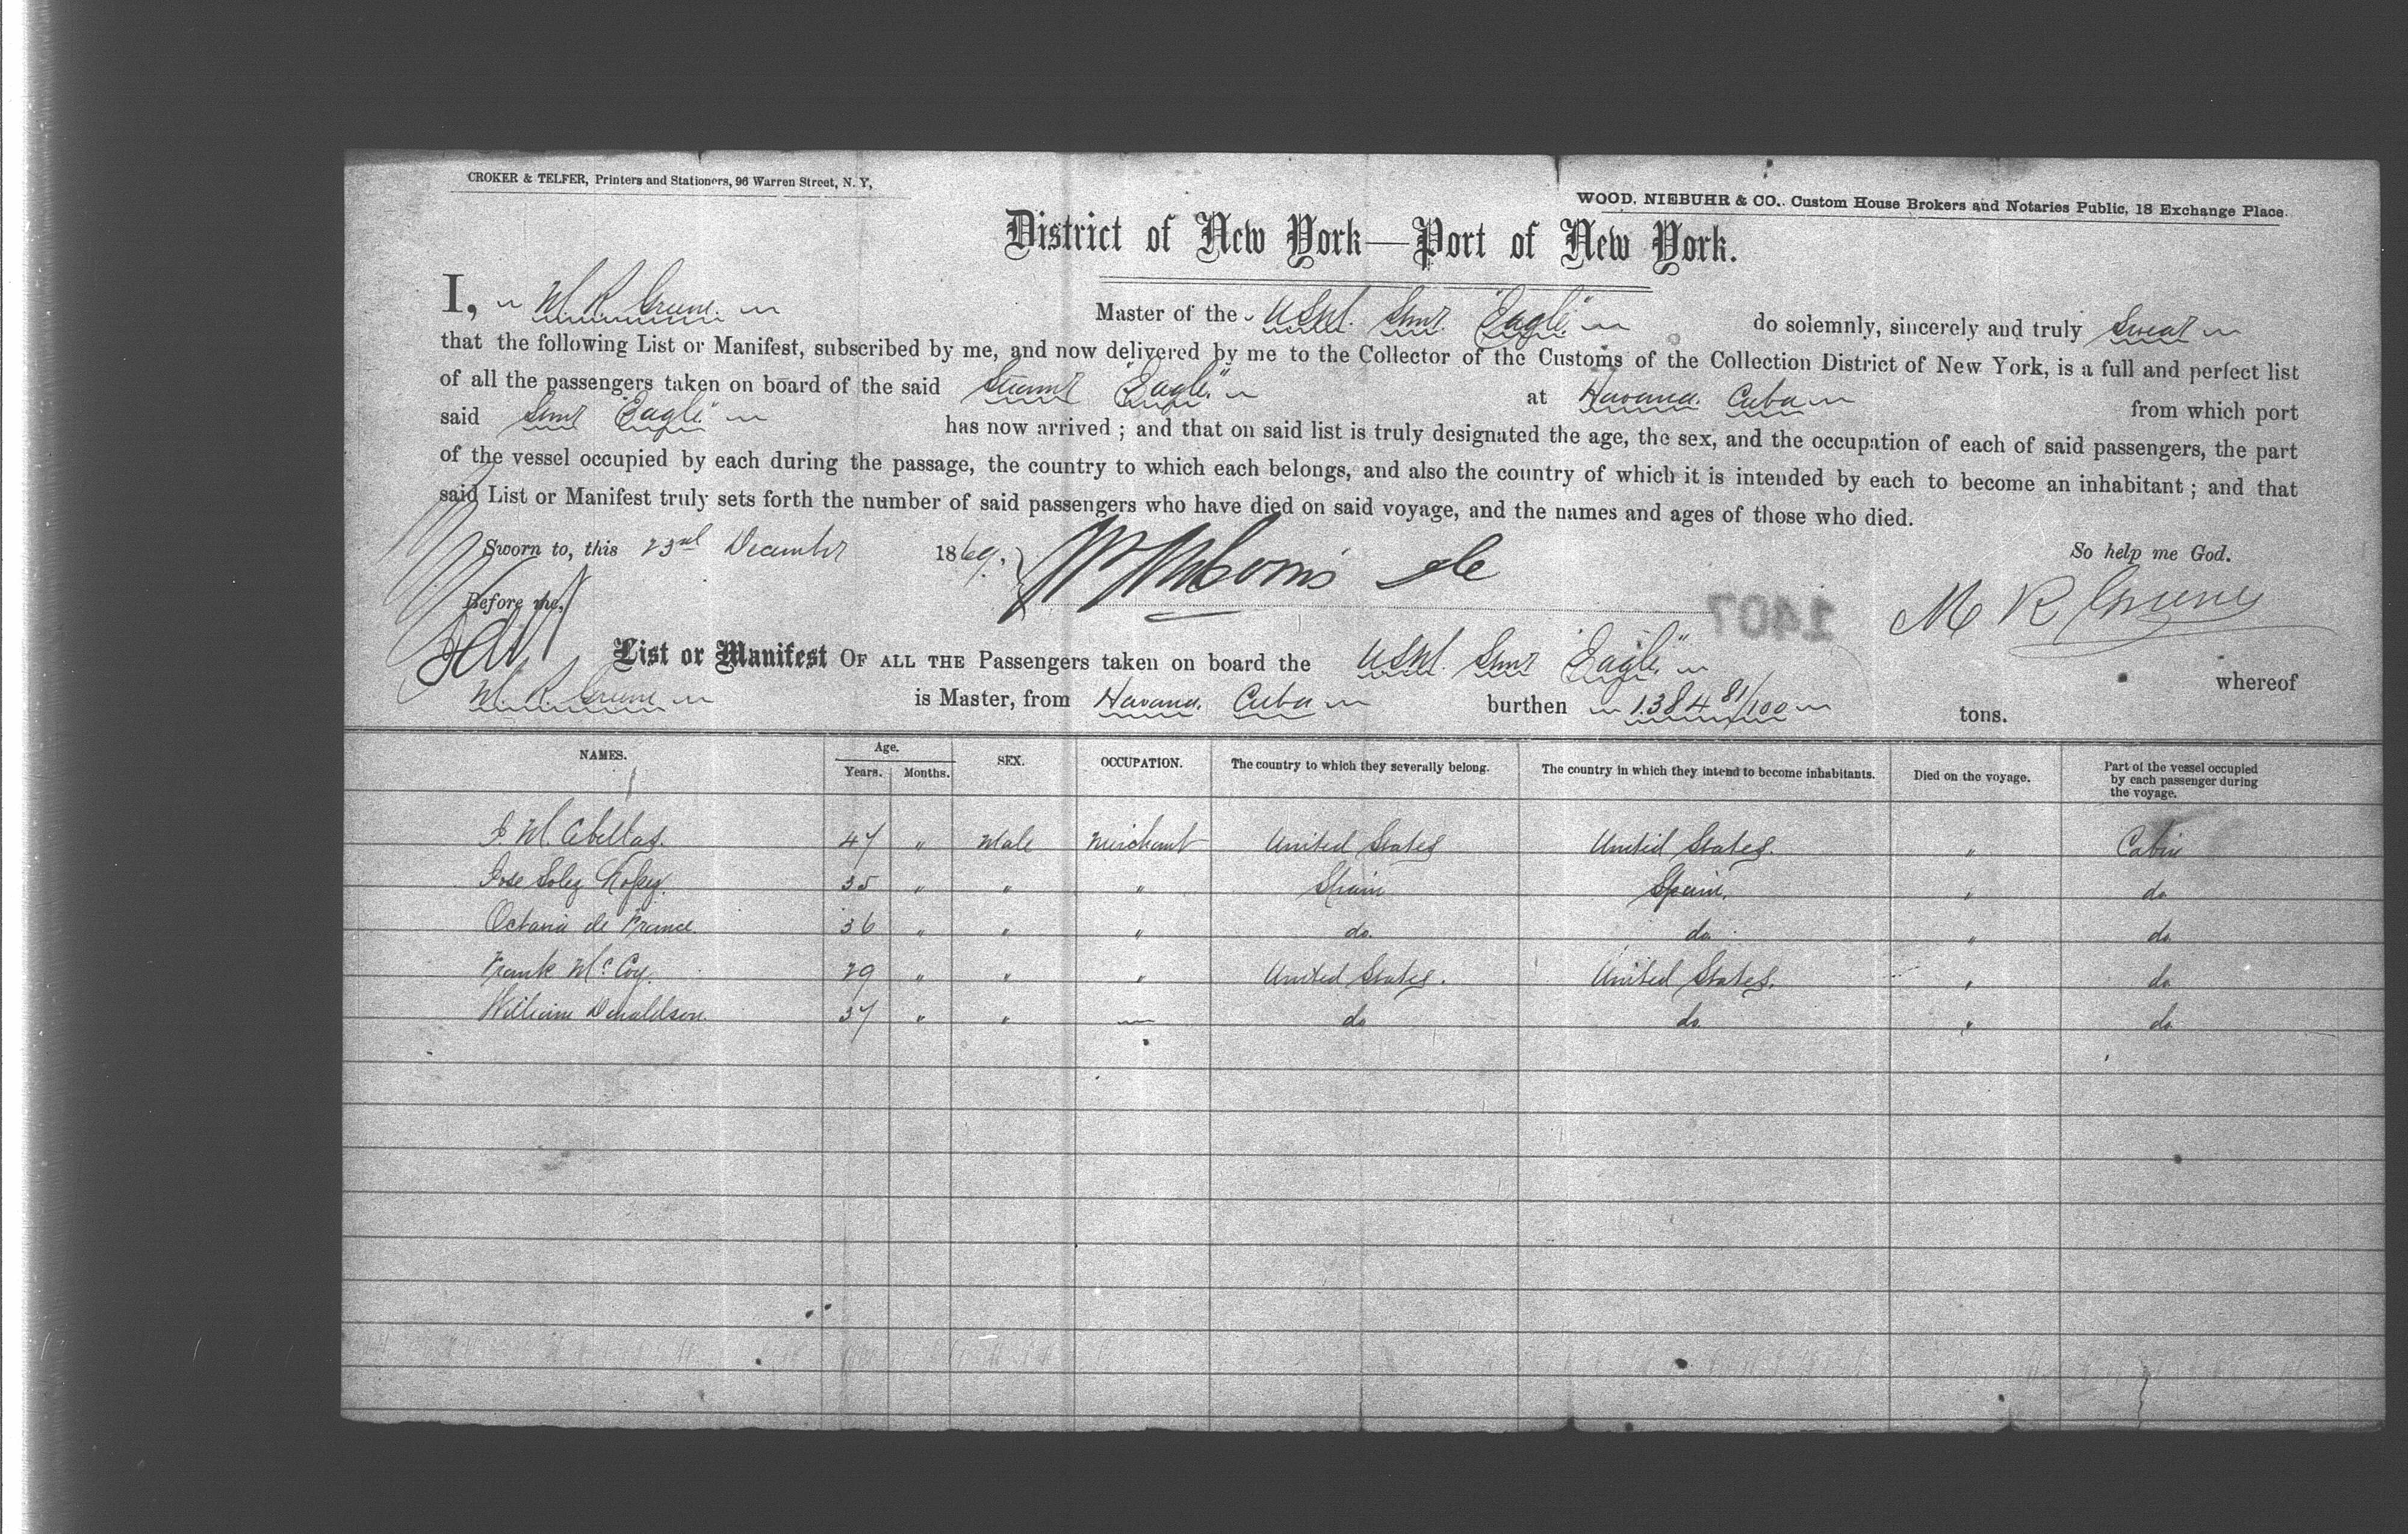 CROKER & TELFER, Printers and Stationers, 96 Warren Street, N. Y,
WOOD, NIEBUHR & CO., Custom House Brokers and Notaries Public, 18 Exchange Place.
District of New York—Port of New York.
I, M. R. Greene. Master of the USM. Stmr. "Eagle" do solemnly, sincerely and truly Swear
that the following List or Manifest, subscribed by me, and now delivered by me to the Collector of the Customs of the Collection District of New York, is a full and perfect list
of all the passengers taken on board of the said Steamr "Eagle" at Havana. Cuba from which port
said Stmr "Eagle" has now arrived; and that on said list is truly designated the age, the sex, and the occupation of each of said passengers, the part
of the vessel occupied by each during the passage, the country to which each belongs, and also the country of which it is intended by each to become an inhabitant; and that
said List or Manifest truly sets forth the number of said passengers who have died on said voyage, and the names and ages of those who died.
Sworn to, this 23rd December 1869. So help me God.
Before me, M R Greene
1407
List or Manifest OF ALL THE Passengers taken on board the USM. Stmr "Eagle" whereof
M. R. Greene is Master, from Havana. Cuba burthen 1.384 81/100 tons.
NAMES. Age. Years. Months. SEX. OCCUPATION. The country to which they severally belong. The country in which they intend to become inhabitants. Died on the voyage. Part of the vessel occupied by each passenger during the voyage.
M. 47 " Male Merchant United States United States. " Cabin
Jose Lopez. 35 " " " Spain Spain. " do
de 36 " " " do. do. " do
Frank McCoy. 29 " " " United States. United States. " do
William Donaldson. 37 " " — do do. " do